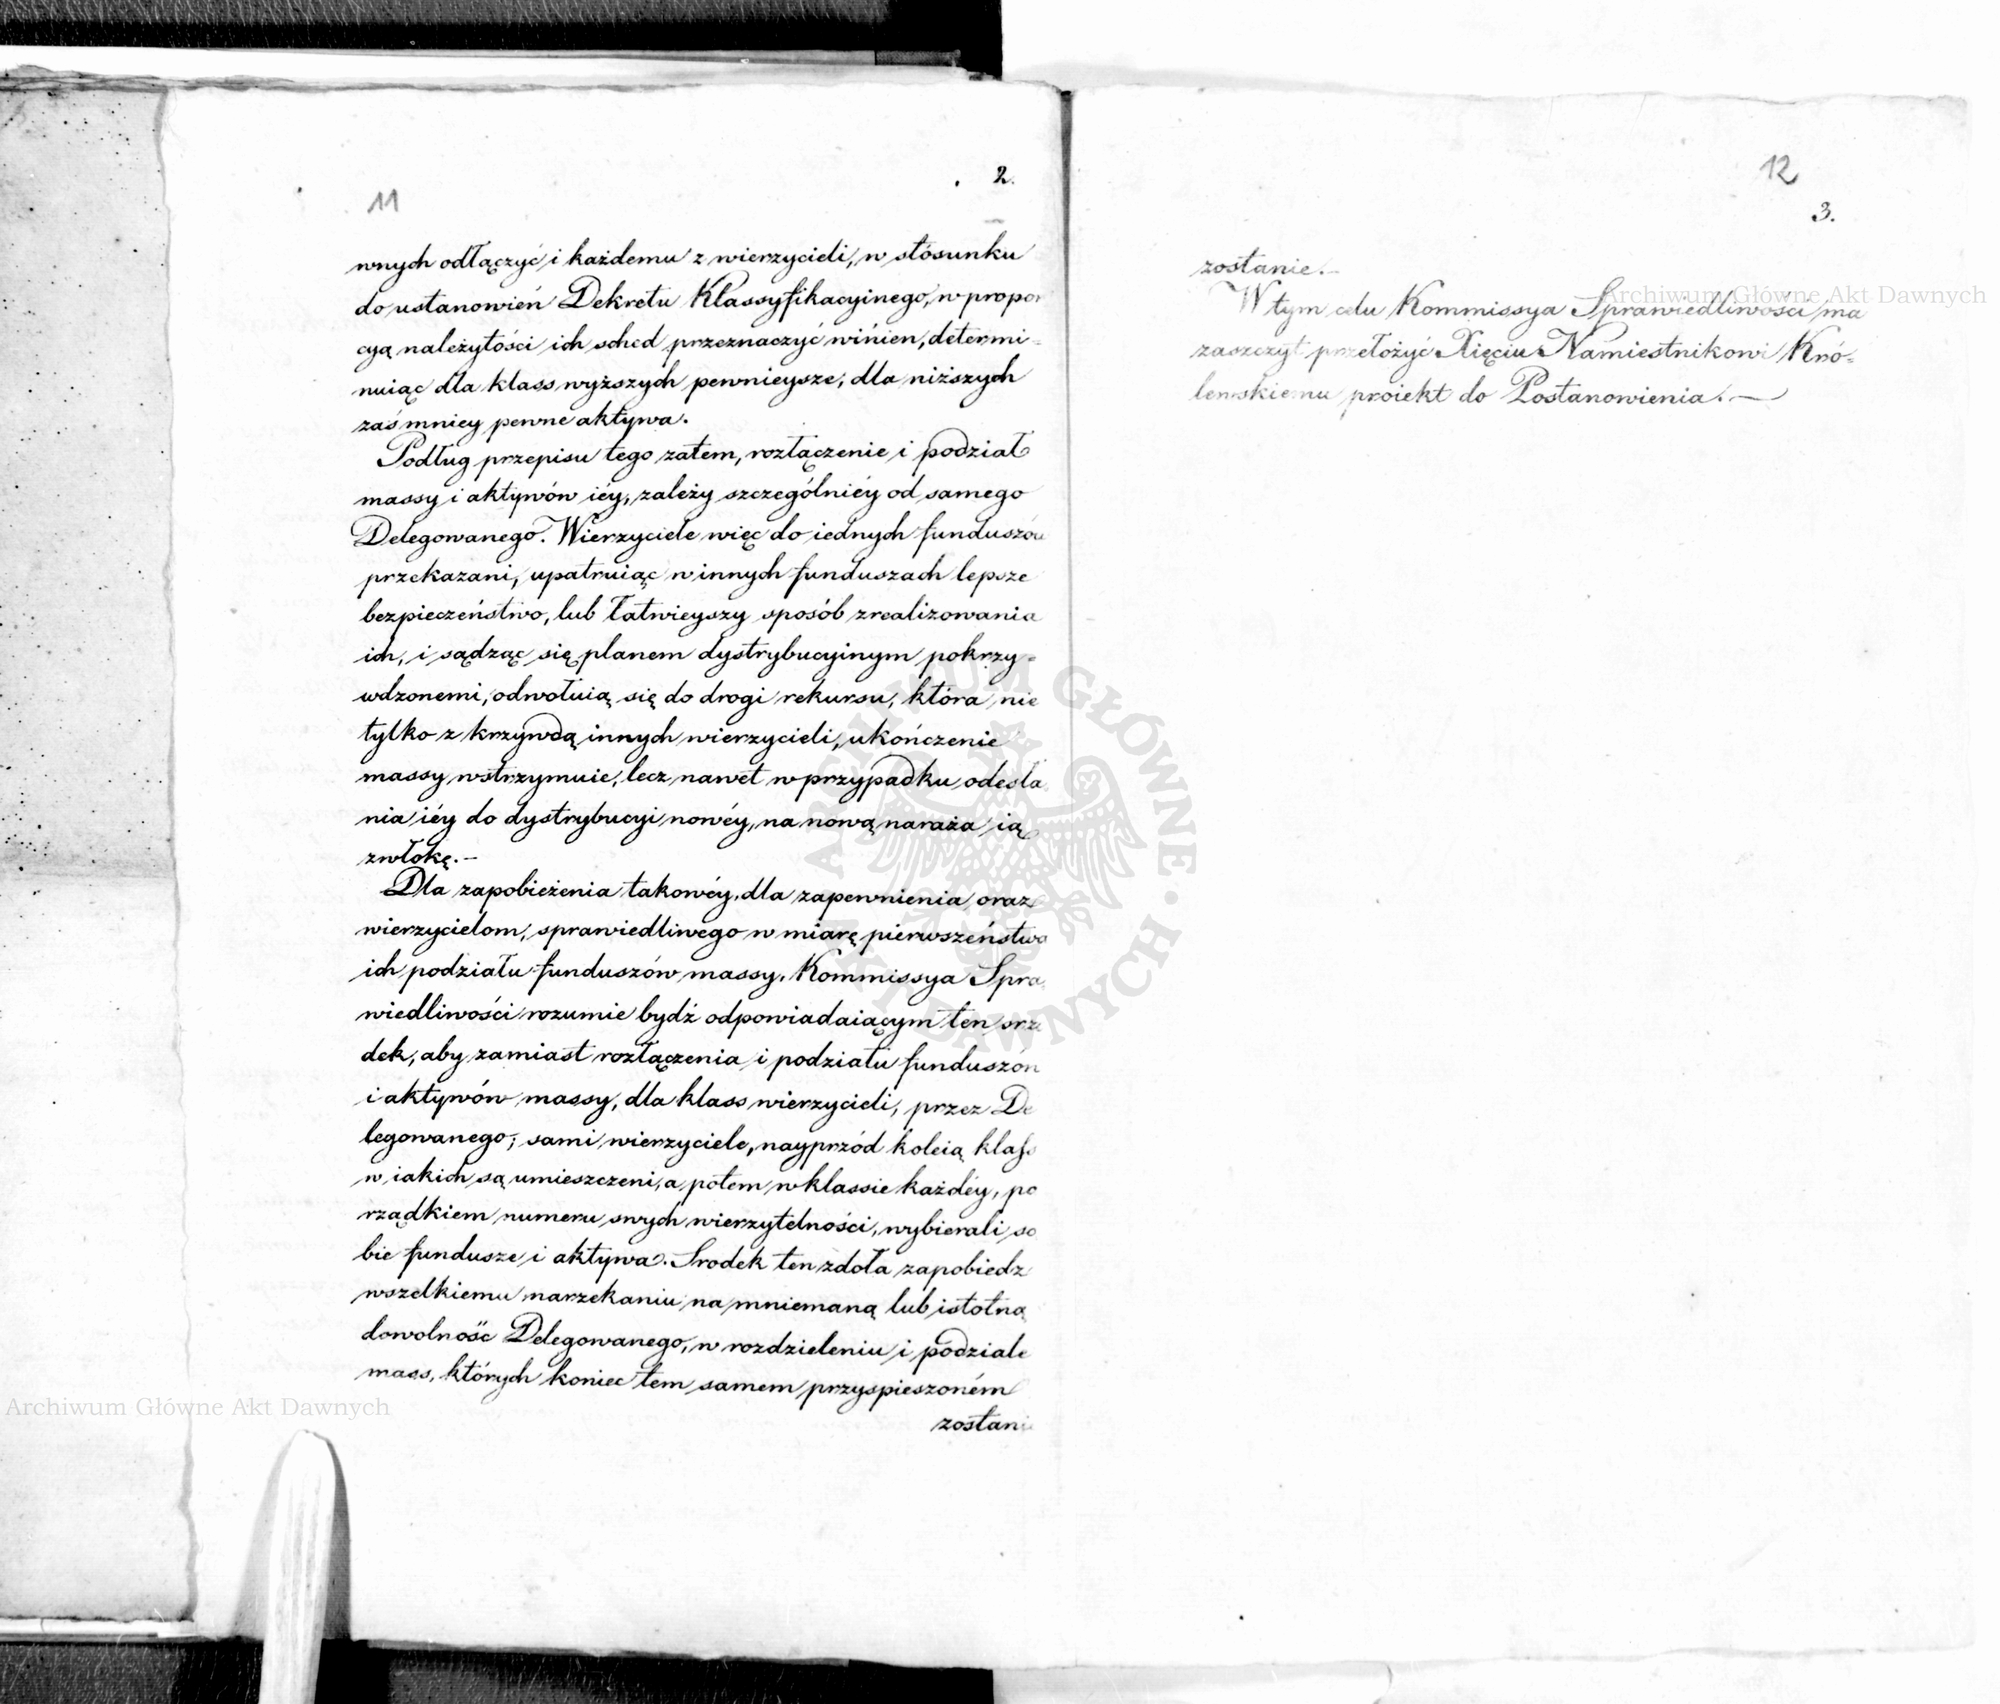 11
2.
wnych odłączyć i każdemu z wierzycieli, w stósunku
do ustanowień Dekretu Klassyfikacyinego, w propor
cyą należytości ich sched przeznaczyć winien, determi=
nuiąc dla klass wyższych pewnieysze, dla niższych
zaś mniey pewne aktywa.
Podług przepisu tego zatem, rozłączenie i podział
massy i aktywów iéy, zależy szczególniéy od samego
Delegowanego. Wierzyciele więc do iednych funduszów
przekazani, upatruiąc w innych funduszach lepsze
bezpieczeństwo, lub łatwieyszy sposób zrealizowania
ich, i sądząc się planem dystrybucyinym pokrzy=
wdzonemi, odwołuią się do drogi rekursu, która nie
tylko z krzywdą innych wierzycieli, ukończenie
massy wstrzymuie, lecz nawet w przypadku odesła
nia iéy do dystrybucyi nowéy, na nową naraża ią
zwłokę.—
Dla zapobieżenia takowéy, dla zapewnienia oraz
wierzycielom, sprawiedliwego w miarę pierwszeństwa
ich podziału funduszów massy, Kommissya Spra
wiedliwości rozumie bydź odpowiadaiącym ten śrz
dek, aby zamiast rozłączenia i podziału funduszów
i aktywów massy, dla klass wierzycieli, przez De
legowanego; sami wierzyciele, nayprzód koleią klass
w iakich są umieszczeni, a potem w klassie każdéy, po
rządkiem numeru swych wierzytelności, wybierali so
bie fundusze i aktywa. Srodek ten zdoła zapobiedz
wszelkiemu narzekaniu na mniemaną lub istotną
dowolność Delegowanego, w rozdzieleniu i podziale
mass, których koniec tem samem przyspieszoném
zostanie
12
3.
zostanie.—
W tym celu Kommissya Sprawiedliwości ma
zaszczyt przełożyć Xięciu Namiestnikowi Kró=
lewskiemu proiekt do Postanowienia.—
Archiwum Główne Akt Dawnych
Archiwum Główne Akt Dawnych
ARCHIWUM GŁÓWNE AKT DAWNYCH